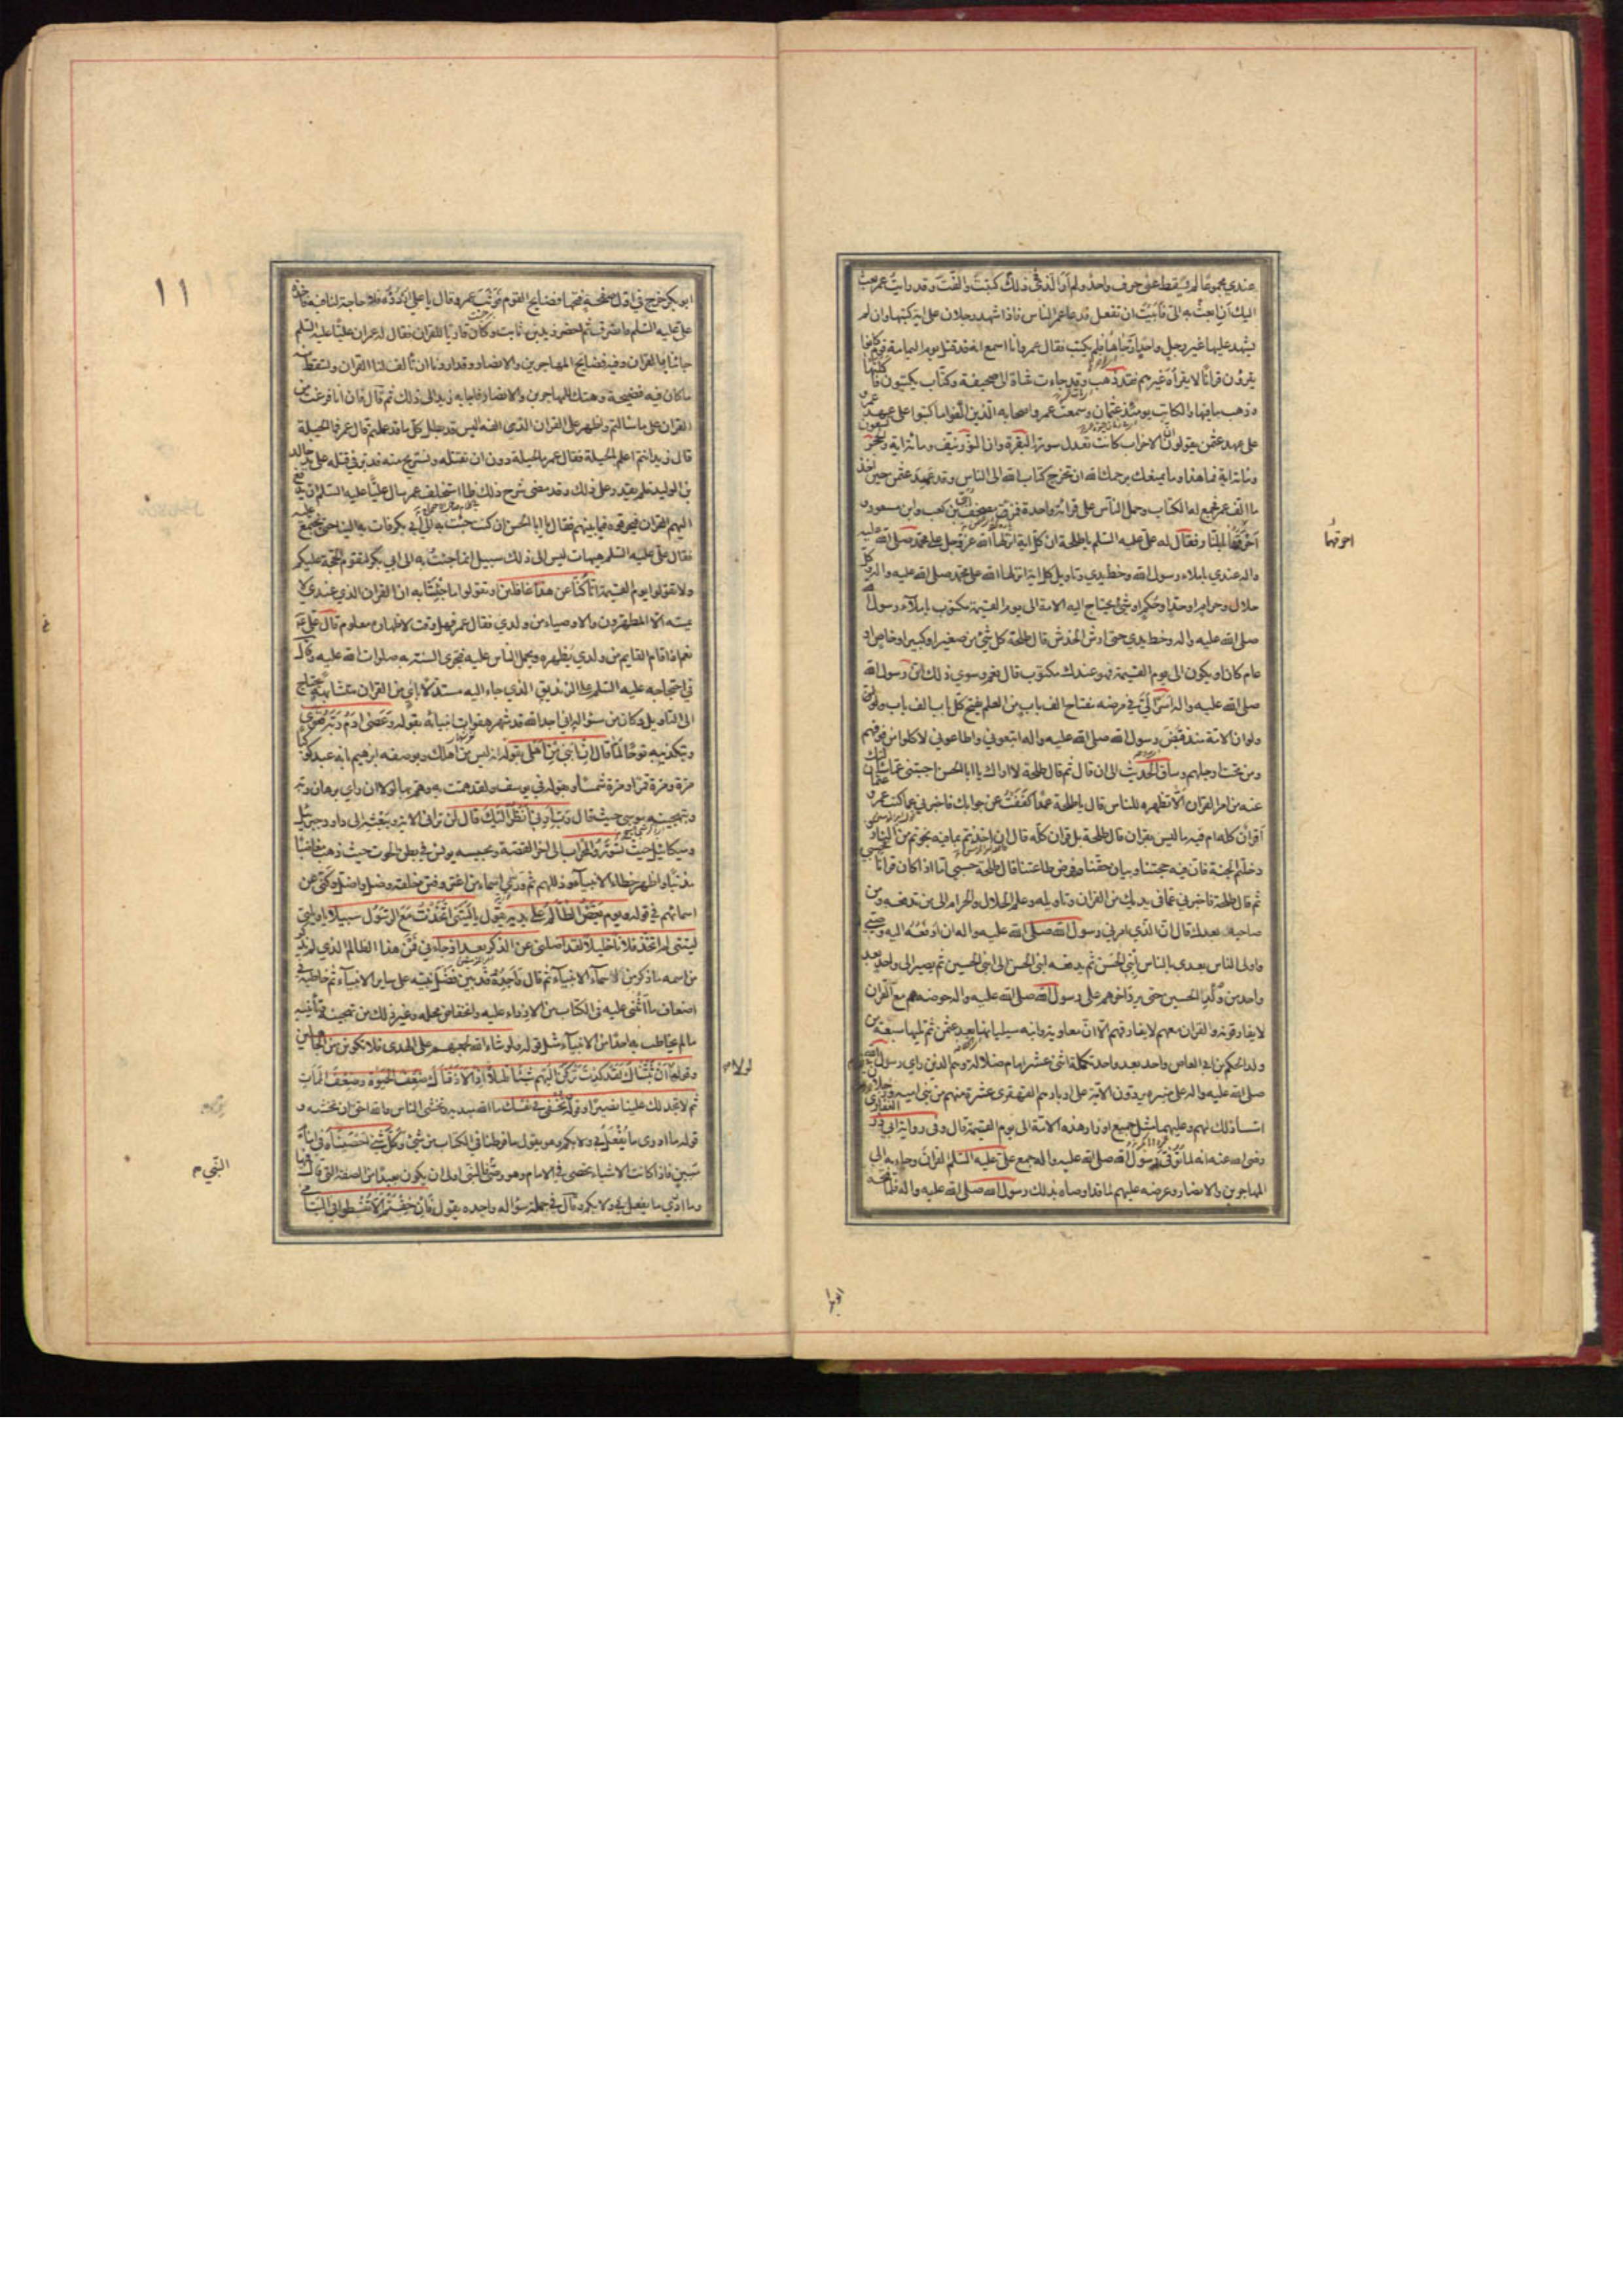 عندي مجموعًا لم يسقط عنى حرف واحد ولم أر الذى ذلك كتبت والفت وقد رايت عمر بعث
اليك أن ابعث به الىّ فأبيت ان تفعل فدعا عمر الناس فاذا شهد رجلان على اية كتبها وان لم
يشهد عليها غير رجل واحد ارجاها فلم يكتب فقال عمر وأنا اسمع انه قد قتل يوم اليمامة قوم كانوا
يقرؤن قرانًا لا يقرأه غيرهم فقد ذهب وقد جاءت شاة الى صحيفة وكتّاب يكتبون فأكلتها
وذهب ما فيها والكاتب يومئذ عثمان وسمعت عمر واصحابه الذين الّفوا ما كتبوا على عهد عمر و
على عهد عثمن يقولون ان الاحزاب كانت تعدل سورة البقرة وان النور نيف ومائة اية والحجر
ومائة اية فما هذا وما يمنعك يرحمك الله ان تخرج كتاب الله الى الناس وقد عهد عثمن حين اخذ
ما الّف عمر فجمع له الكتاب وحمل الناس على قرائة واحدة فمزق مصحف ابى بن كعب وابن مسعود و
احرقهما بالنار فقال له على عليه السلم يا طلحة ان كل اية انزلها الله عز وجل على محمد صلى الله عليه
واله عندي باملاء رسول الله وخط يدي وتاويل كل اية انزلها الله على محمد صلى الله عليه واله وكل
حلال وحرام او حد او حكم او شئ يحتاج اليه الامة الى يوم القيمة مكتوب باملاء رسول الله
صلى الله عليه واله وخط يدي حتى ارش الخدش قال طلحة كل شئ من صغير او كبير او خاص او
عام كان او يكون الى يوم القيمة فهو عندك مكتوب قال نعم وسوى ذلك ان رسول الله
صلى الله عليه واله اسرّ الىّ في مرضه مفتاح الف باب من العلم يفتح كل باب الف باب
ولو ان الامة منذ قبض رسول الله صلى الله عليه واله اتبعوني واطاعوني لاكلوا من فوقهم
ومن تحت ارجلهم وساق الحديث الى ان قال ثم قال طلحة لا اراك يا ابا الحسن اجبتنى عما سألتك
عنه من امر القران الّا تظهره للناس قال يا طلحة عمدًا كففت عن جوابك فاخبرني عما كتب عمر وعثمان
أقران كله ام فيه ما ليس بقران قال طلحة بل قران كله قال ان اخذتم بما فيه نجوتم من النار و
دخلتم الجنة فان فيه حجتنا وبيان حقنا وفرض طاعتنا قال طلحة حسبي اما اذا كان قرانًا فحسبي
ثم قال طلحة فاخبرني عما في يديك من القران وتاويله وعلم الحلال والحرام الى من تدفعه ومن
صاحبه بعدك قال ان الذي امرني رسول الله صلى الله عليه واله ان ادفعه اليه وصيي
واولى الناس بعدي بالناس ابني الحسن ثم يدفعه ابني الحسن الى ابني الحسين ثم يصير الى واحد بعد
واحد من ولد الحسين حتى يرد اخرهم على رسول الله صلى الله عليه واله حوضه هم مع القران
لا يفارقونه والقران معهم لا يفارقهم الّا ان معاوية وابنه سيليانها بعد عثمن ثم يليها سبعة من
ولد الحكم بن ابي العاص واحد بعد واحد تكملة اثنى عشر امام ضلالة وهم الذين راى رسول الله
صلى الله عليه واله على منبره يردون الامة على ادبارهم القهقرى عشرة منهم من بني امية ورجلان
اسسا ذلك لهم وعليهما مثل جميع اوزار هذه الامة الى يوم القيمة قال وفى رواية ابي ذر الغفاري
رضى الله عنه انه لما توفى رسول الله صلى الله عليه واله جمع على عليه السلم القران وجاء به الى
المهاجرين والانصار وعرضه عليهم لما قد اوصاه بذلك رسول الله صلى الله عليه واله فلما فتحه
احرقهما
ابو بكر خرج في اول صفحة فتحها فضايح القوم فوثب عمر وقال يا على اردده فلا حاجة لنا فيه فاخذه
على عليه السلم وانصرف ثم احضر زيد بن ثابت وكان قاريًا للقران فقال له عمر ان عليًا عليه السلم
جائنا بالقران وفيه فضايح المهاجرين والانصار وقد اردنا ان تالف لنا القران وتسقط منه
ما كان فيه فضيحة وهتك للمهاجرين والانصار فاجابه زيد الى ذلك ثم قال فان انا فرغت من
القران على ما سألتم واظهر على القران الذي الفه اليس قد بطل كل ما قد عملتم قال عمر فما الحيلة
قال زيد انتم اعلم بالحيلة فقال عمر ما الحيلة دون ان نقتله ونستريح منه فدبر في قتله على يد خالد
بن الوليد فلم يقدر على ذلك وقد مضى شرح ذلك فلما استخلف عمر سال عليًا عليه السلم ان يدفع
اليهم القران فيحرقوه فيما بينهم فقال يا ابا الحسن ان كنت جئت به الى ابي بكر فات به الينا حتى نجتمع عليه
فقال على عليه السلم هيهات ليس الى ذلك سبيل انما جئت به الى ابي بكر لتقوم الحجة عليكم
ولا تقولوا يوم القيمة انا كنا عن هذا غافلين وتقولوا ما جئتنا به ان القران الذي عندي لا
يمسه الا المطهرون والاوصياء من ولدي فقال عمر فهل وقت لاظهاره معلوم قال على ع
نعم اذا قام القايم من ولدي يظهره ويحمل الناس عليه فتجري السنة به صلوات الله عليه
في احتجاجه عليه السلم على الزنديق الذي جاء اليه مستدلًا باي من القران متشابهة يحتاج
الى التاويل وكان من سؤاله اني اجد الله قد شهر هفوات انبيائه بقوله وعصى ادم ربه فغوى
وبتكذيبه نوحًا لما قال ان ابني من اهلي بقوله انه ليس من اهلك وبوصفه ابرهيم انه عبد كوكبا
مرة ومرة قمرًا ومرة شمسًا وبقوله في يوسف ولقد همت به وهم بها لولا ان راى برهان ربه
وبتهجينه موسى حيث قال رب ارنى انظر اليك قال لن تراني الاية وببعثه الى داود جبرئيل
وميكائيل حيث تسوروا المحراب الى اخر القصة وبحبسه يونس في بطن الحوت حيث ذهب مغاضبًا
مذنبًا واظهر خطاء الانبياء وزللهم ثم ورى اسماء من اغتر وفتن خلقه وضل واضل وكنى عن
اسمائهم في قوله ويوم يعض الظالم على يديه يقول يا ليتني اتخذت مع الرسول سبيلًا يا ويلتي
ليتني لم اتخذ فلانًا خليلًا لقد اضلني عن الذكر بعد اذ جاءني فمن هذا الظالم الذي لم يذكر
من اسمه ما ذكر من اسماء الانبياء ثم قال واجده قد بين فضل نبيه على ساير الانبياء ثم خاطبه في
اضعاف ما اثنى عليه في الكتاب من الازراء عليه وانخفاض محله وغير ذلك من تهجينه وتأنيبه
ما لم يخاطب به احدًا من الانبياء مثل قوله ولو شاء الله لجمعهم على الهدى فلا تكونن من الجاهلين
وقوله ان ثبتناك لقد كدت تركن اليهم شيئًا قليلًا اذًا لاذقناك ضعف الحيوة وضعف الممات
ثم لا تجد لك علينا نصيرًا وقوله وتخفي في نفسك ما الله مبديه وتخشى الناس والله احق ان تخشيه و
قوله ما ادرى ما يفعل بي ولا بكم وهو يقول ما فرطنا في الكتاب من شئ وكل شئ احصيناه في امام
مبين فاذا كانت الاشياء تحصى في الامام وهو وصي النبي فالنبي اولى ان يكون بعيدًا من الصفة التي قال فيها
وما ادري ما يفعل بي ولا بكم وقال في جملة سؤاله واجده يقول فان خفتم الا تقسطوا في اليتامى
١١
لولا
النبي م
ابو بكر